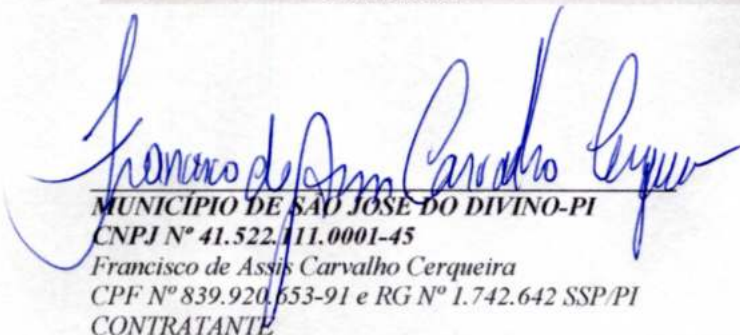 Francisco de Assis Carvalho Cerqueira
MUNICÍPIO DE SÃO JOSÉ DO DIVINO-PI
CNPJ Nº 41.522.111.0001-45
Francisco de Assis Carvalho Cerqueira
CPF Nº 839.920.653-91 e RG Nº 1.742.642 SSP/PI
CONTRATANTE